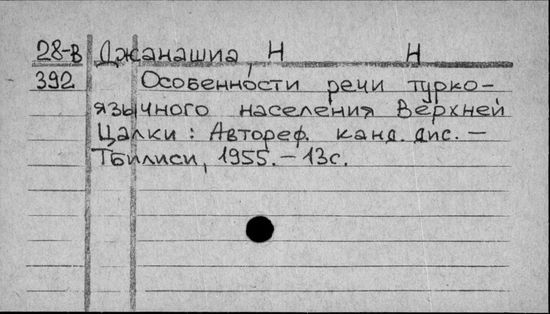 28-В Джанашиа, Н Н
392 Особенности речи турко-
язычного населения Верхней
Цалки : Автореф. канд. дис. –
Тбилиси, 1955. – 13с.